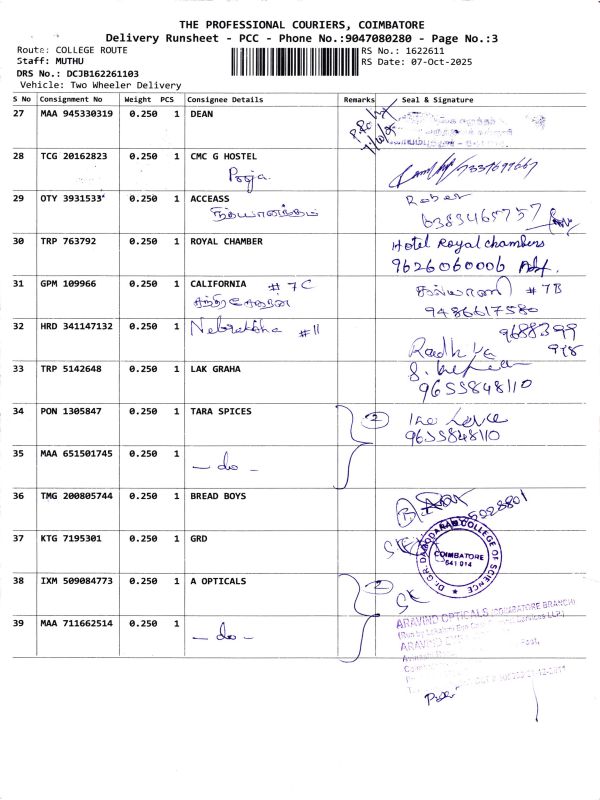 THE PROFESSIONAL COURIERS, COIMBATORE
Delivery Runsheet - PCC - Phone No.:9047080280 - Page No.:3
Route: COLLEGE ROUTE
RS No.: 1622611
Staff: MUTHU
RS Date: 07-Oct-2025
DRS No.: DCJB162261103
Vehicle: Two Wheeler Delivery
S No Consignment No Weight PCS Consignee Details Remarks Seal & Signature
27 MAA 945330319 0.250 1 DEAN
28 TCG 20162823 0.250 1 CMC G HOSTEL
Pooja 7337697667
29 OTY 3931533 0.250 1 ACCEASS
6383465757
30 TRP 763792 0.250 1 ROYAL CHAMBER Hotel Royal chambers
9626060006
31 GPM 109966 0.250 1 CALIFORNIA # 7C # 7B
9486617580
32 HRD 341147132 0.250 1 # 11 9688399
978
33 TRP 5142648 0.250 1 LAK GRAHA
9655848110
34 PON 1305847 0.250 1 TARA SPICES 2
9655848110
35 MAA 651501745 0.250 1 - do -
36 TMG 200805744 0.250 1 BREAD BOYS
37 KTG 7195301 0.250 1 GRD
Dr. GR DAMODARAN COLLEGE OF SCIENCE
COIMBATORE
641 014
38 IXM 509084773 0.250 1 A OPTICALS 2
39 MAA 711662514 0.250 1 - do -
ARAVIND OPTICALS (COIMBATORE BRANCH)